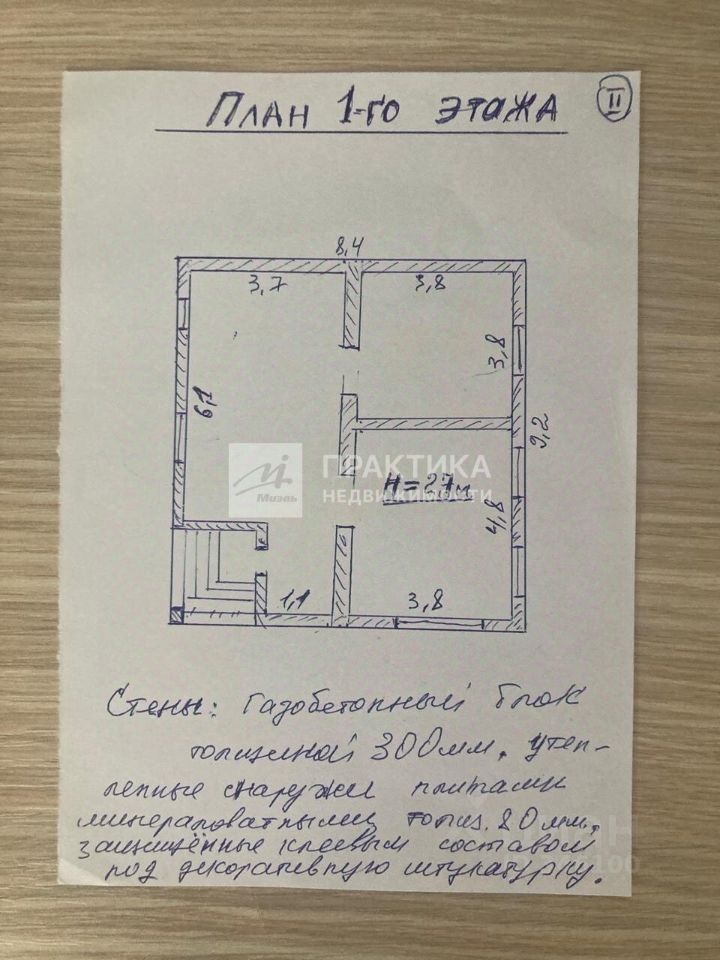 План 1-го этажа
II
8,4
3,7
3,8
3,8
6,1
9,2
ПРАКТИКА
НЕДВИЖИМОСТИ
Миэль
H=2,7м
4,8
1,1
3,8
Стены: Газобетонный блок
толщиной 300 мм. утеп-
ленные снаружи плитами
минераловатными толщ. 80 мм.
защищённые клеевым составом
под декоративную штукатурку.